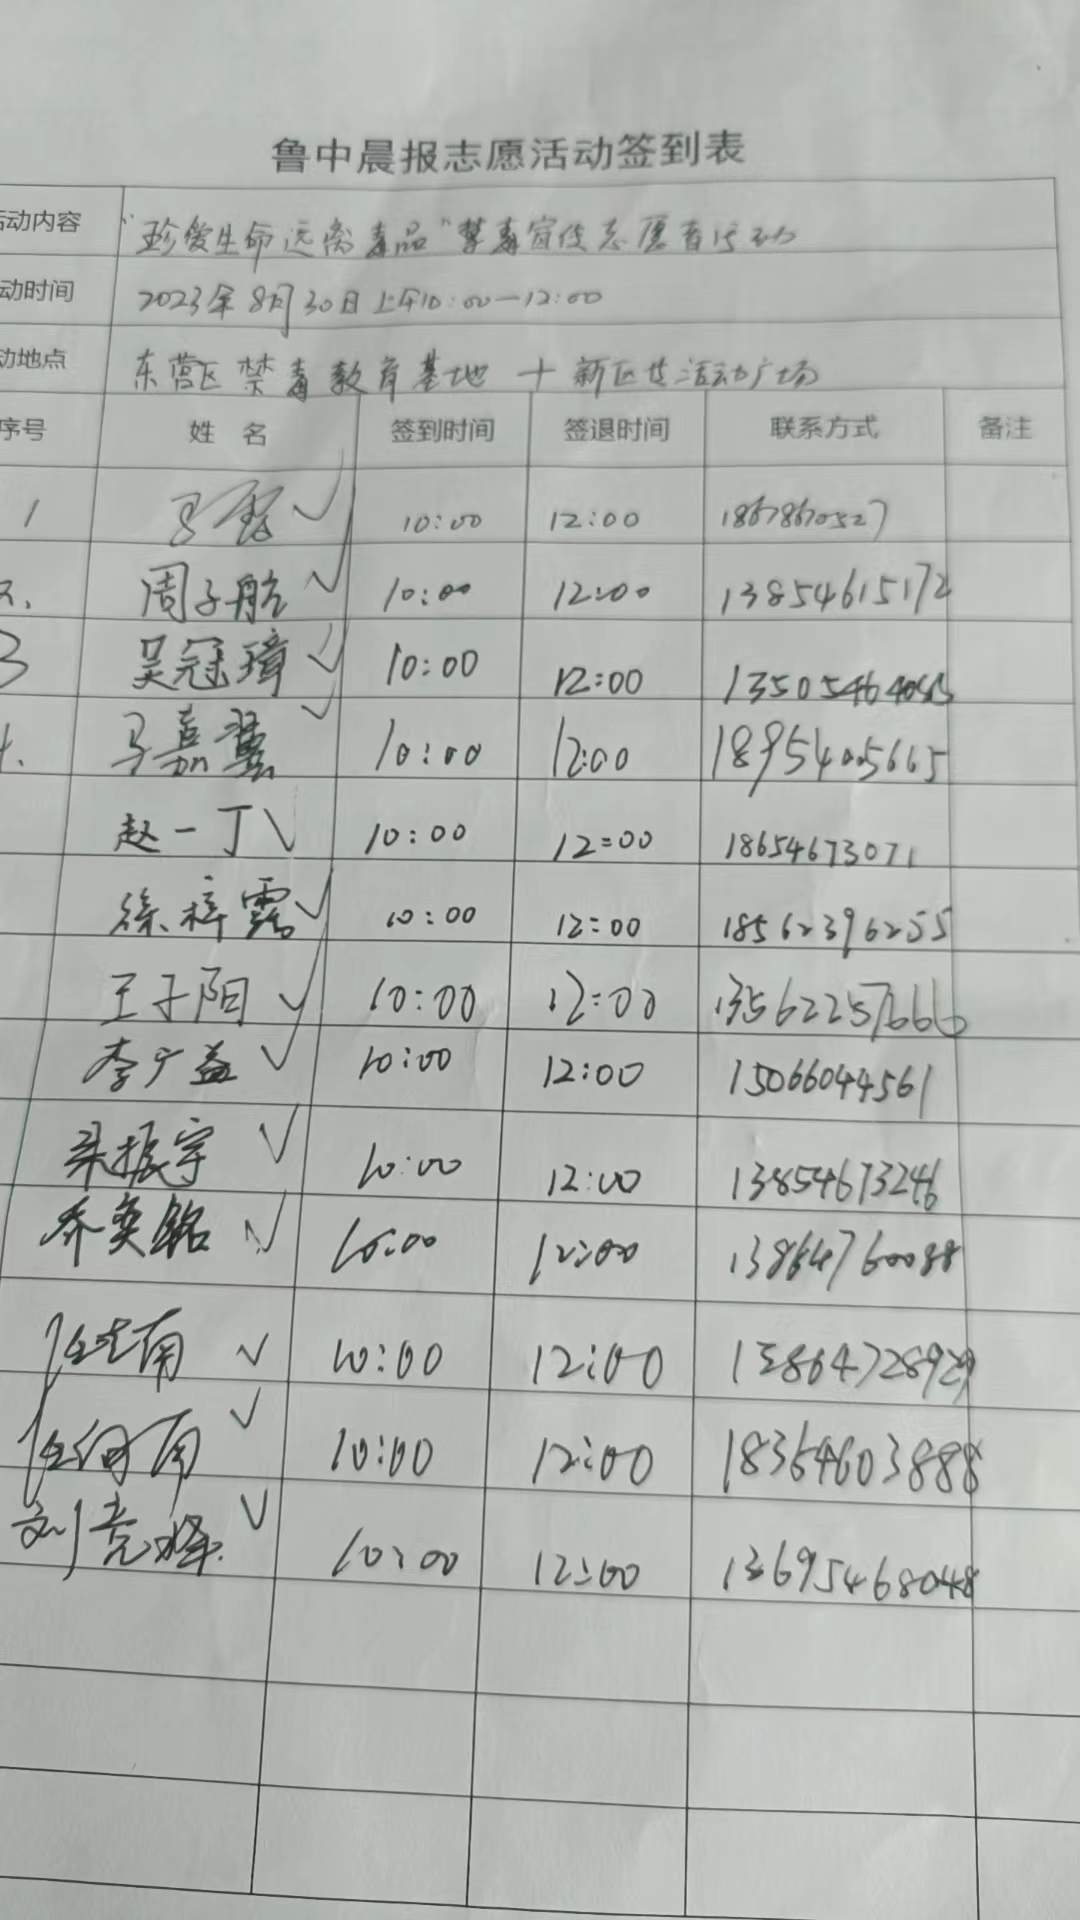 鲁中晨报志愿活动签到表
活动内容 "珍爱生命远离毒品"禁毒宣传志愿者活动
动时间 2023年8月30日上午10:00—12:00
动地点 东营区禁毒教育基地 + 新区 活动广场
序号 姓 名 签到时间 签退时间 联系方式 备注
1 10:00 12:00
2. 周子航 ✓ 10:00 12:00 13854615172
3 吴冠璋 ✓ 10:00 12:00
马嘉翼 ✓ 10:00 12:00 18954005665
赵一丁 ✓ 10:00 12:00 18654673071
徐梓露 ✓ 10:00 12:00 18562396255
王子阳 ✓ 10:00 12:00 13562257666
李广益 ✓ 10:00 12:00 15066044561
振宇 ✓ 10:00 12:00 13854673246
乔奕铭 ✓ 10:00 12:00 13864760088
✓ 10:00 12:00 13864728929
✓ 10:00 12:00 18364603888
刘竞择 ✓ 10:00 12:00 13695468048